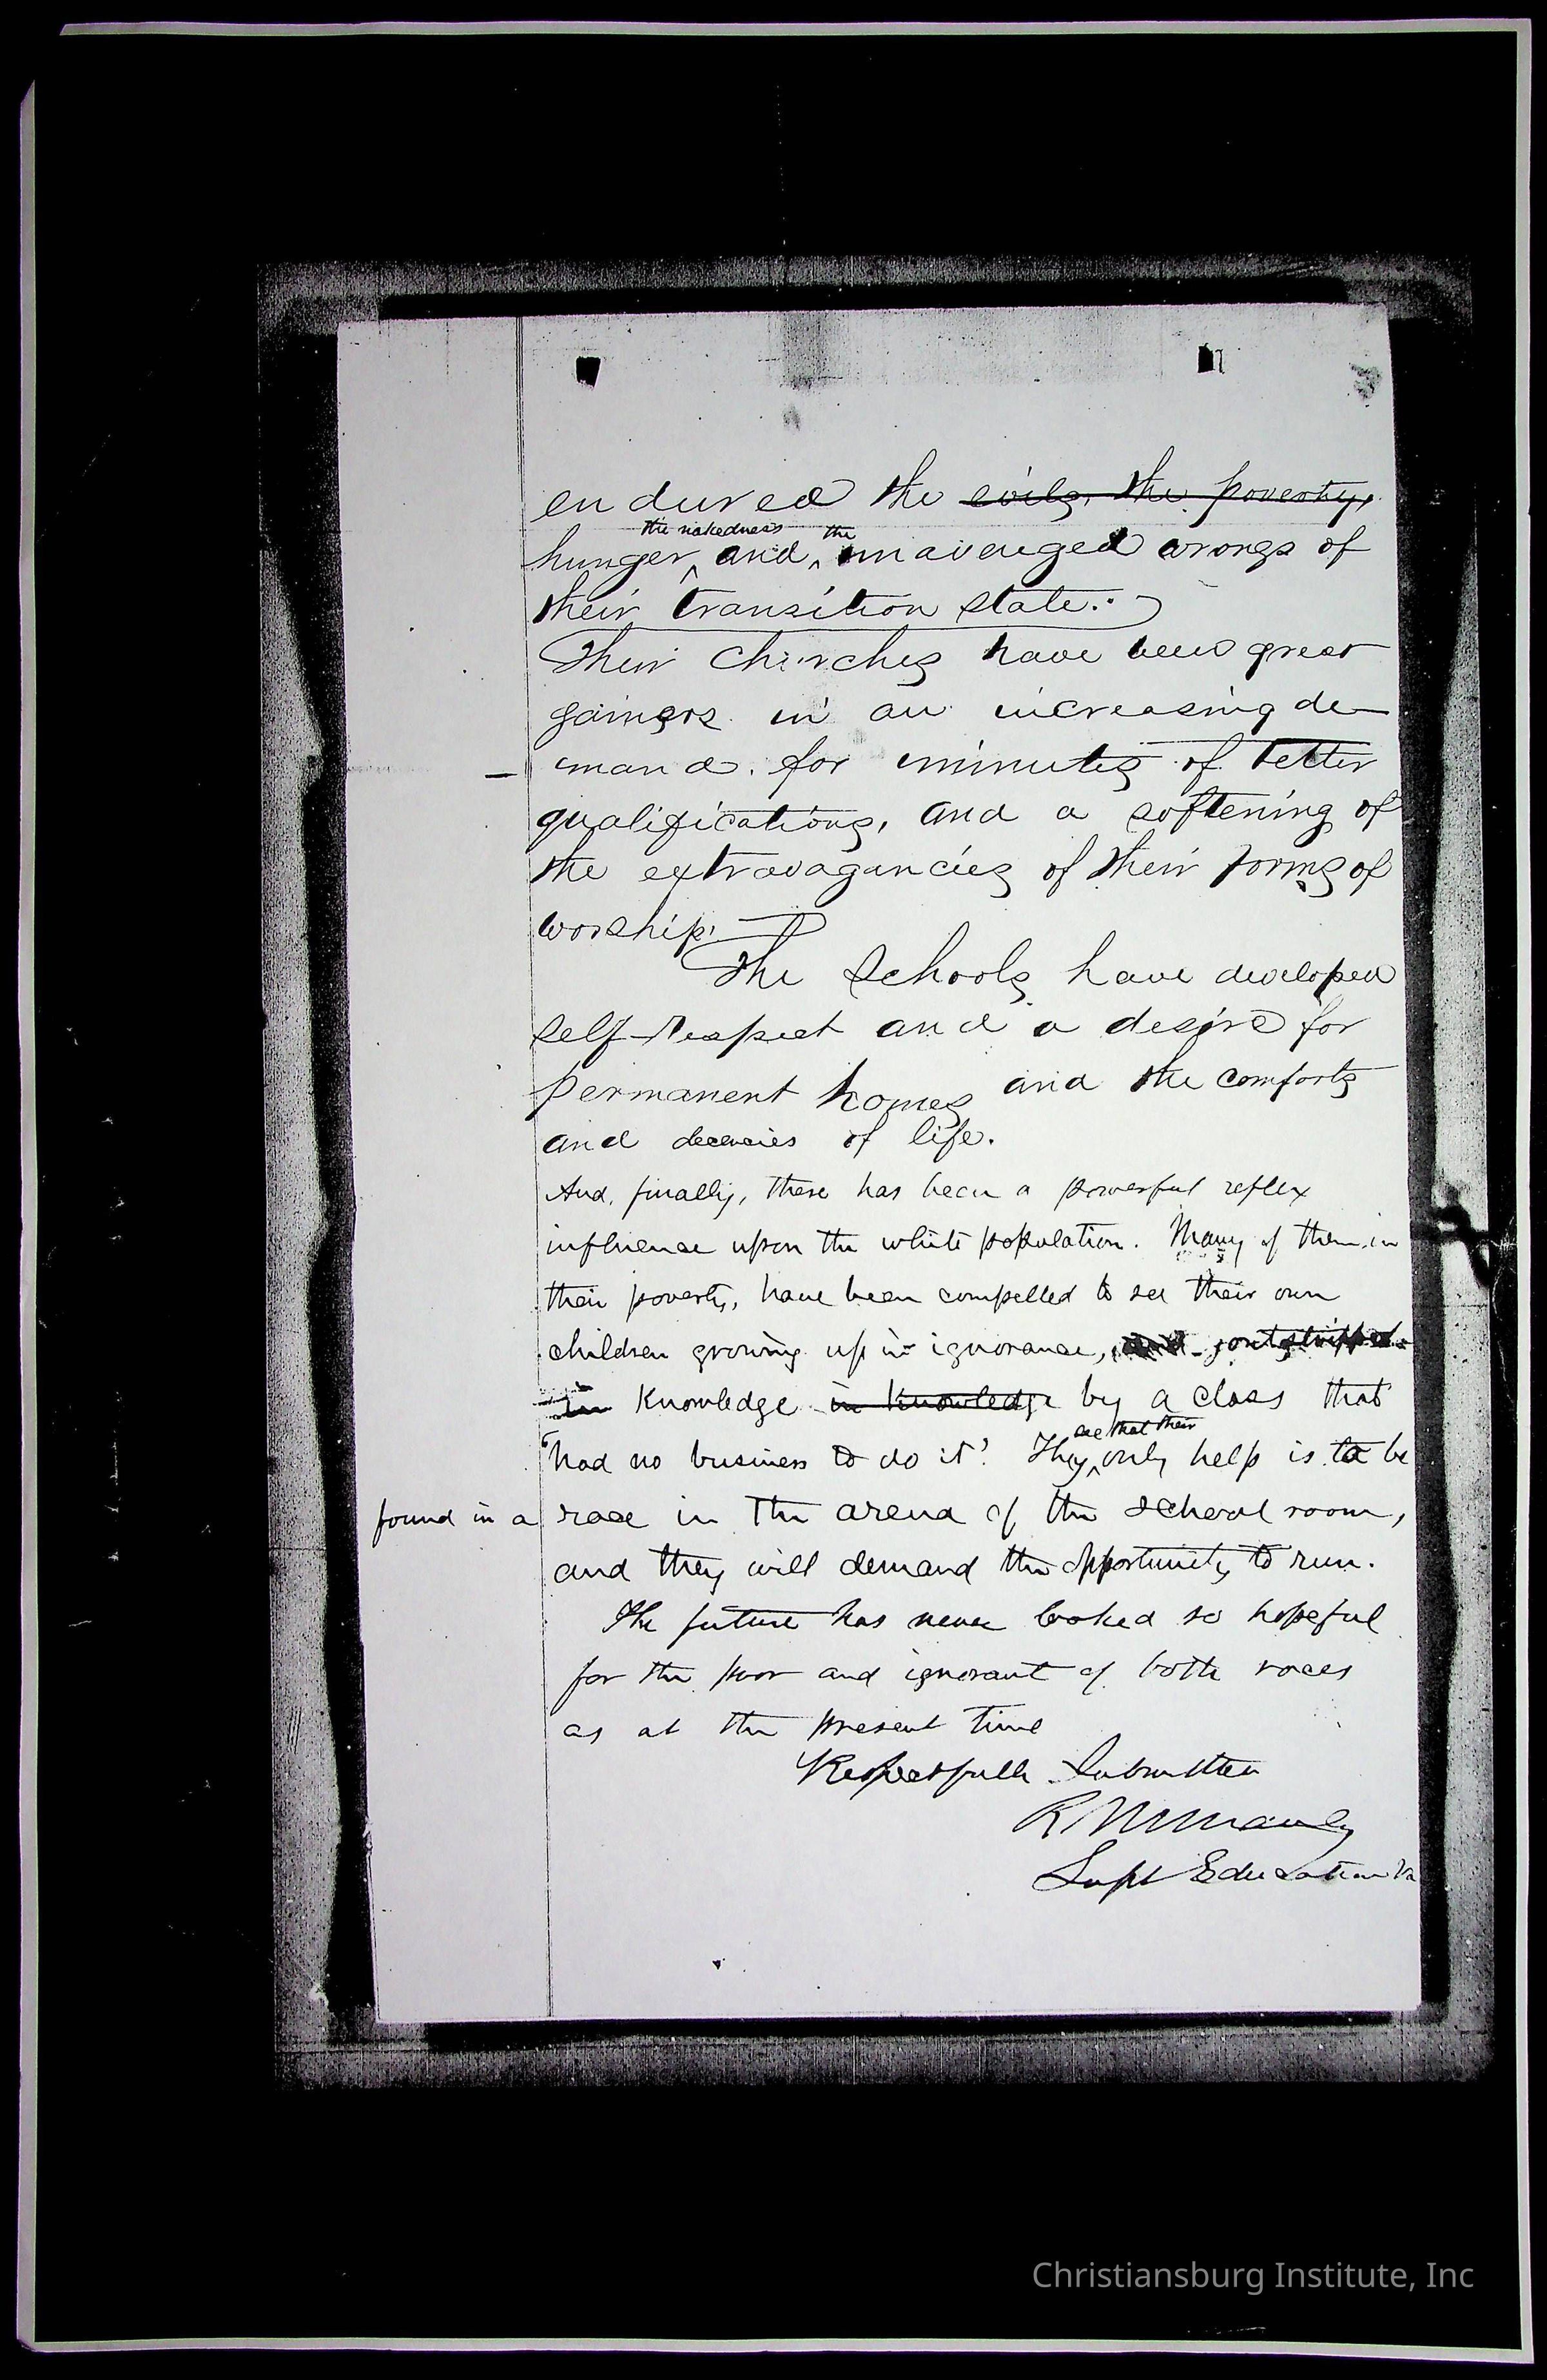 endured the evils, the poverty,
the nakedness the
hunger, and, unavenged wrongs of
their transition state.
Their churches have been great
gainers in an increasing de-
mand for minutes of better
qualifications, and a softening of
the extravagancies of their forms of
worship.
The Schools have developed
self-respect and a desire for
permanent homes and the comforts
and decencies of life.
And, finally, there has been a powerful reflex
influence upon the white population. Many of them, in
their poverty, have been compelled to see their own
children growing up in ignorance, and outstripped
in Knowledge in knowledge by a class that
see that their
"had no business to do it". They only help is to be
found in a race in the arena of the school room,
and they will demand the opportunity to run.
The future has never looked so hopeful
for the poor and ignorant of both races
as at the present time
Respectfully Submitted
R M Manly
Supt Education Va
Christiansburg Institute, Inc